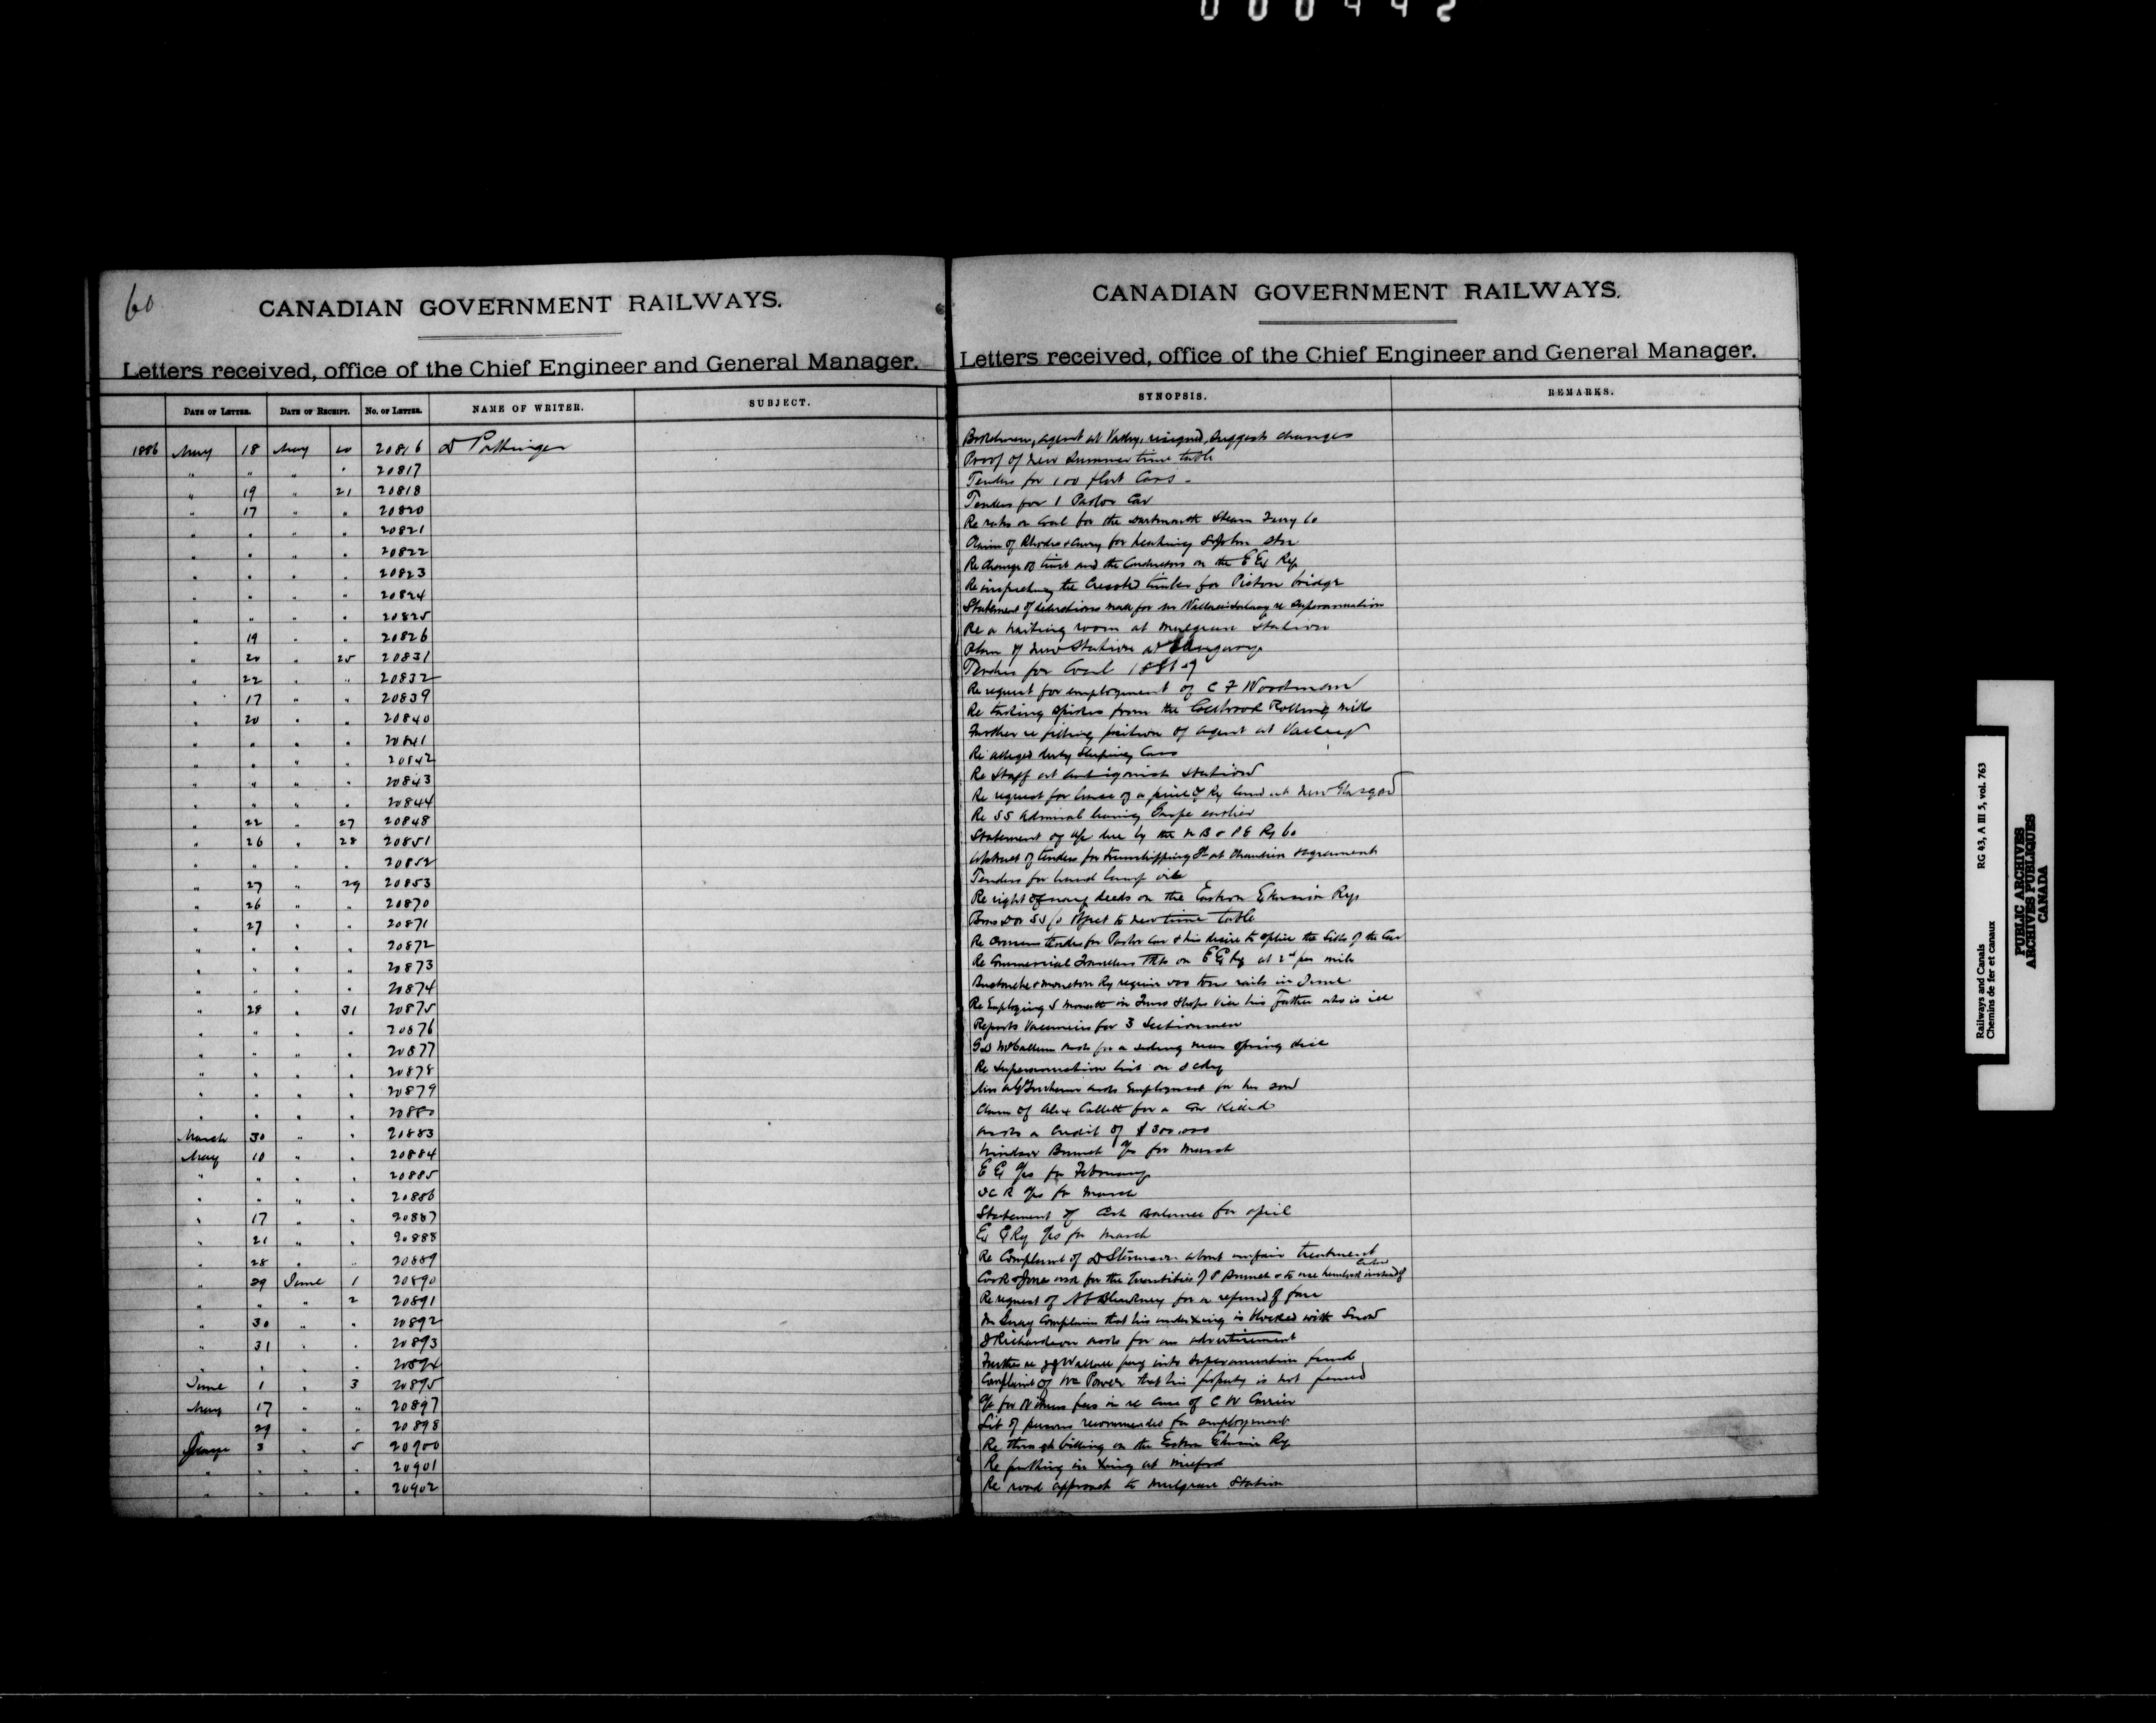 000442
60
CANADIAN GOVERNMENT RAILWAYS.
Letters received, office of the Chief Engineer and General Manager.
DATE OF LETTER. DATE OF RECEIPT. No. OF LETTER. NAME OF WRITER. SUBJECT.
1886 May 18 May 20 20816 D Pottinger
" " " " 20817
" 19 " 21 20818
" 17 " " 20820
" " " " 20821
" " " " 20822
" " " " 20823
" " " " 20824
" " " " 20825
" 19 " " 20826
" 20 " 25 20831
" 22 " " 20832
" 17 " " 20839
" 20 " " 20840
" " " " 20841
" " " " 20842
" " " " 20843
" " " " 20844
" 22 " 27 20848
" 26 " 28 20851
" " " " 20852
" 27 " 29 20853
" 26 " " 20870
" 27 " " 20871
" " " " 20872
" " " " 20873
" " " " 20874
" 28 " 31 20875
" " " " 20876
" " " " 20877
" " " " 20878
" " " " 20879
" " " " 20880
March 30 " " 20883
May 10 " " 20884
" " " " 20885
" " " " 20886
" 17 " " 20887
" 21 " " 20888
" 28 " " 20889
" 29 June 1 20890
" " " 2 20891
" 30 " " 20892
" 31 " " 20893
" " " " 20894
June 1 " 3 20895
May 17 " " 20897
" 29 " " 20898
June 3 " 5 20900
" " " " 20901
" " " " 20902
CANADIAN GOVERNMENT RAILWAYS.
Letters received, office of the Chief Engineer and General Manager.
SYNOPSIS. REMARKS.
agent at Valley, resigned, suggests changes
Proof of new Summer time table
Tenders for 100 flat Cars
Tenders for 1 Parlor Car
Re rates on Coal for the Dartmouth Steam Ferry Co
Claim of Rhodes & Curry for heating St John Stn
Re change of time and the Conductors on the E Ex Ry
Re inspecting the Creosoted timber for Pictou bridge
Statement of deductions made for Mr Wallace's Salary re Superannuation
Re a waiting room at Mulgrave Station
Plan of new Station at
Tenders for Coal 1886-7
Re request for employment of C F Woodman
Re taking spikes from the Coldbrook Rolling Mills
Further re filling position of agent at Valley
Re alleged dirty Sleeping Cars
Re Staff at Antigonish Station
Re request for lease of a piece of Ry land at New Glasgow
Re SS Admiral leaving Gaspe earlier
Statement of a/c due by the N B & P E Ry Co
Abstract of tenders for transhipping at Chaudiere & agreement
Tenders for hand lamp oil
Re right of way deeds on the Eastern Extension Ry
object to new time table
Re tender for Parlor Car & his desire to splice the Sills of the Car
Re Commercial Travellers Tkts on E Ex Ry at 2ct per mile
Buctouche & Moncton Ry require 500 tons rails in June
Re Employing S in Shops vice his father who is ill
Reports Vacancies for 3 Sectionmen
G D McCallum asks for a siding near Spring hill
Re Superannuation list
asks Employment for her son
Claim of Alex Collett for a Cow Killed
Asks a Credit of $300.000
Windsor Branch a/cs for March
E Ex a/cs for February
I C R a/cs for March
Statement of Cash Balance for April
E Ex Ry a/cs for March
Re Complaint of D about unfair treatment
for the of P & to use instead of
Re request of for a refund of fare
Complains that his undercrossing is blocked with Snow
J Richardson asks for an advertisement
Further re Wallace pay into Superannuation fund
Complaint of Wm Power that his property is not fenced
a/c for Witness fees in re Case of C W Carrier
List of persons recommended for employment
Re through billing on the Eastern Extension Ry
Re putting in Xing at Milford
Re road approach to Mulgrave Station
Railways and Canals
Chemins de fer et canaux
RG 43, A III 5, vol. 763
PUBLIC ARCHIVES
ARCHIVES PUBLIQUES
CANADA